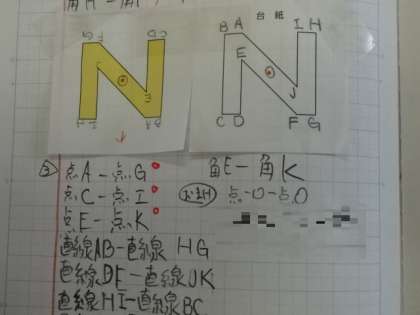 台紙
B A I H
E
J
C D F G
② 点A-点G
点C-点I
点E-点K
直線AB-直線HG
直線DE-直線JK
直線HI-直線BC
角E-角K
点O-点O